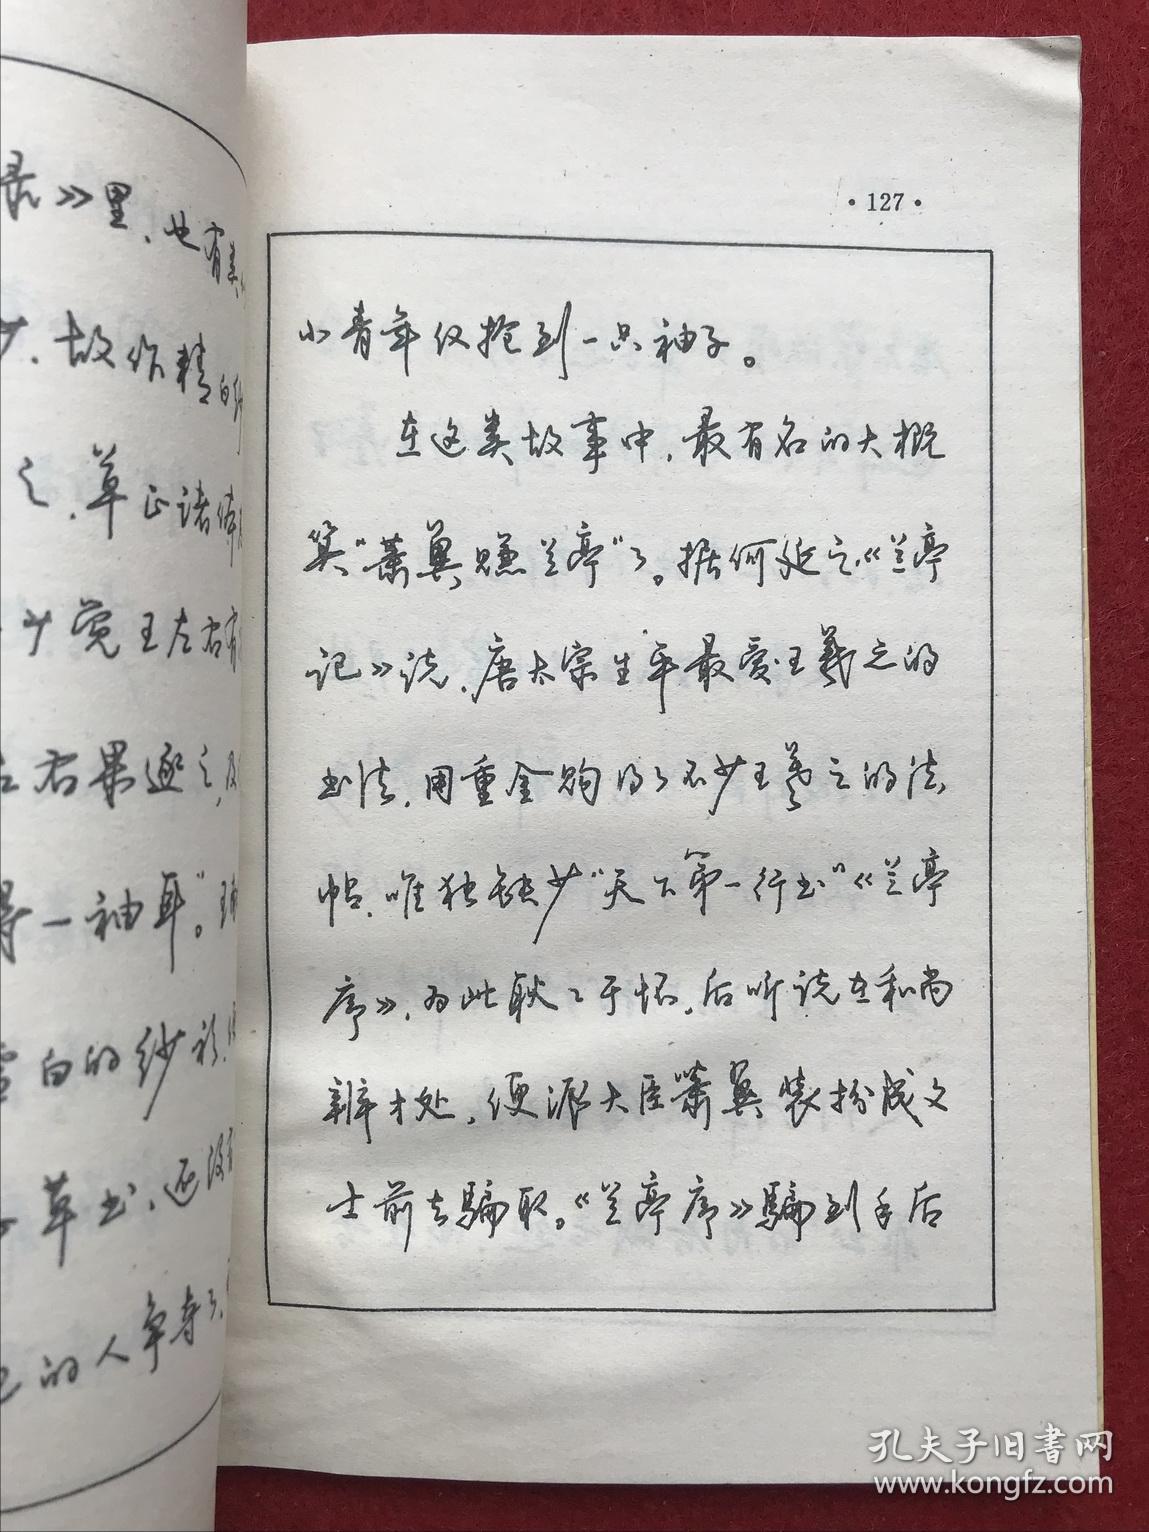 录》里，也有类
少，故作精白纱
之，草正诸体
少觉王左右有
左右果逐之，及
得一袖耳。”
雪白的纱衫，
草书，还没
的人争夺了，
·127·
小青年仅抢到一只袖子。
在这类故事中，最有名的大概
算“萧翼赚兰亭”了。据何延之《兰亭
记》说，唐太宗生平最爱王羲之的
书法，用重金购得了不少王羲之的法
帖，唯独缺少“天下第一行书”《兰亭
序》，为此耿耿于怀，后听说在和尚
辨才处，便派大臣萧翼装扮成文
士前去骗取。《兰亭序》骗到手后
孔夫子旧书网
www.kongfz.com